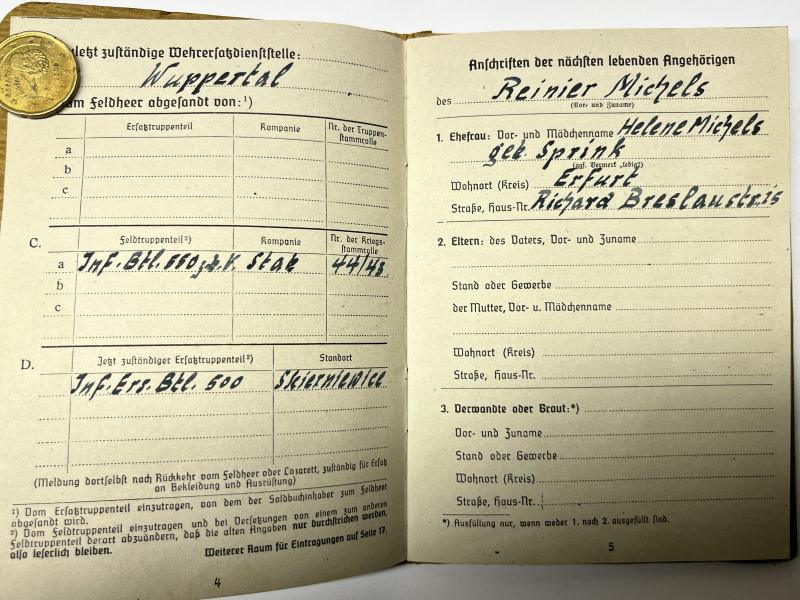 zuletzt zuständige Wehrersatzdienststelle:
Wuppertal
zum Feldheer abgesandt von:¹)
Ersatztruppenteil Kompanie Nr. der Truppen-
stammrolle
a
b
c
C. Feldtruppenteil²) Kompanie Nr. der Kriegs-
stammrolle
a Inf. Btl. 550 z.b.V. Stab 44/43
b
c
D. Jetzt zuständiger Ersatztruppenteil²) Standort
Inf. Ers. Btl. 500 Skierniewice
(Meldung dortselbst nach Rückkehr vom Feldheer oder Lazarett, zuständig für Ersatz
an Bekleidung und Ausrüstung)
¹) Vom Ersatztruppenteil einzutragen, von dem der Soldbuchinhaber zum Feldheer
abgesandt wird.
²) Vom Feldtruppenteil einzutragen und bei Versetzungen von einem zum anderen
Feldtruppenteil derart abzuändern, daß die alten Angaben nur durchstrichen werden,
also leserlich bleiben.
Weiterer Raum für Eintragungen auf Seite 17.
4
Anschriften der nächsten lebenden Angehörigen
des Reinier Michels
(Vor- und Zuname)
1. Ehefrau: Vor- und Mädchenname Helene Michels
geb. Sprink
(ggf. Vermerk „ledig")
Wohnort (Kreis) Erfurt
Straße, Haus-Nr. Richard Breslaustr. 15
2. Eltern: des Vaters, Vor- und Zuname
Stand oder Gewerbe
der Mutter, Vor- u. Mädchenname
Wohnort (Kreis)
Straße, Haus-Nr.
3. Verwandte oder Braut:*)
Vor- und Zuname
Stand oder Gewerbe
Wohnort (Kreis)
Straße, Haus-Nr.
*) Ausfüllung nur, wenn weder 1. noch 2. ausgefüllt sind.
5